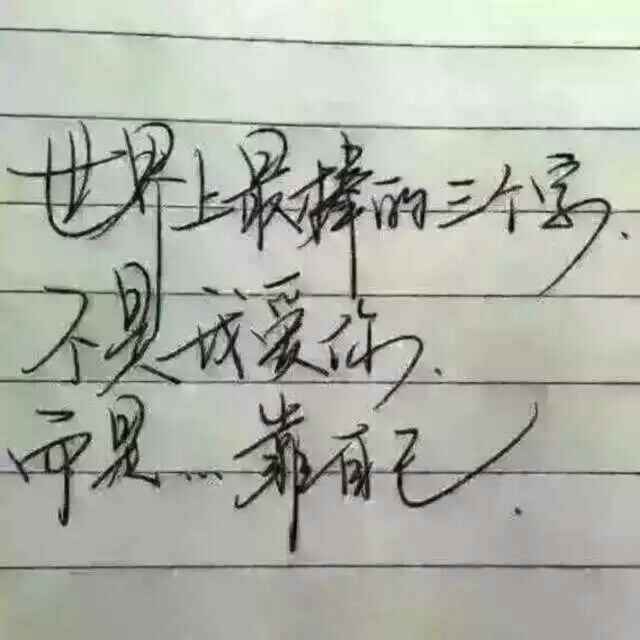 世界上最棒的三个字、
不是我爱你、
而是...靠自己.